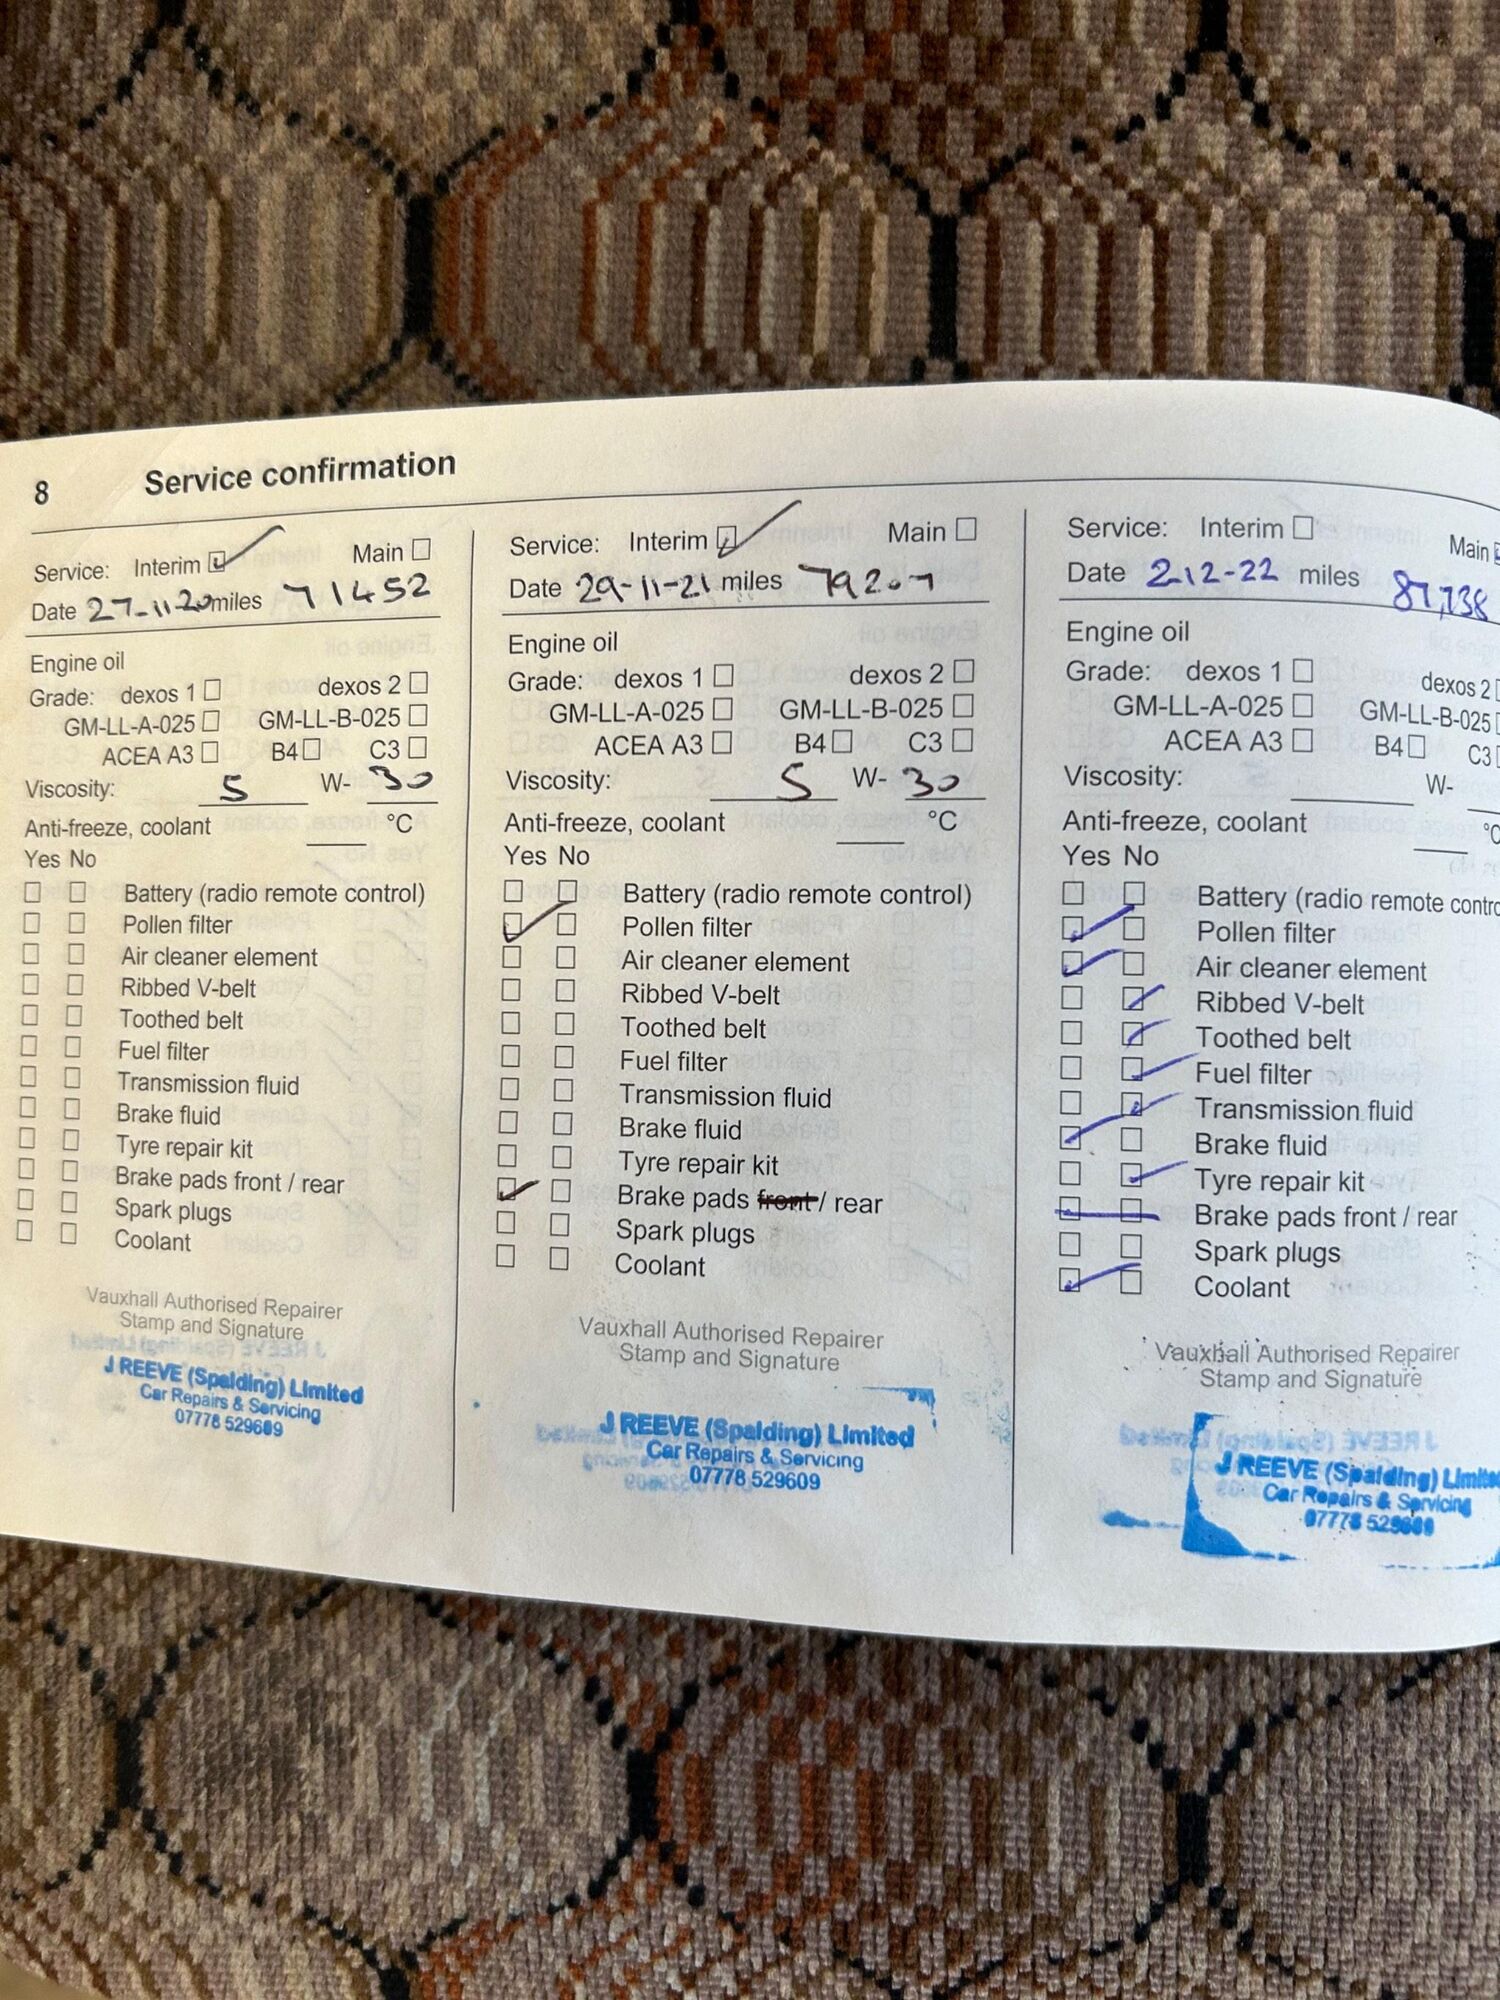 8 Service confirmation
Service: Interim Main
Date 27-11-20 miles 71452
Engine oil
Grade: dexos 1 dexos 2
GM-LL-A-025 GM-LL-B-025
ACEA A3 B4 C3
Viscosity: 5 W- 30
Anti-freeze, coolant °C
Yes No
Battery (radio remote control)
Pollen filter
Air cleaner element
Ribbed V-belt
Toothed belt
Fuel filter
Transmission fluid
Brake fluid
Tyre repair kit
Brake pads front / rear
Spark plugs
Coolant
Vauxhall Authorised Repairer
Stamp and Signature
J REEVE (Spalding) Limited
Car Repairs & Servicing
07778 529609
Service: Interim Main
Date 29-11-21 miles 79207
Engine oil
Grade: dexos 1 dexos 2
GM-LL-A-025 GM-LL-B-025
ACEA A3 B4 C3
Viscosity: 5 W- 30
Anti-freeze, coolant °C
Yes No
Battery (radio remote control)
Pollen filter
Air cleaner element
Ribbed V-belt
Toothed belt
Fuel filter
Transmission fluid
Brake fluid
Tyre repair kit
Brake pads front / rear
Spark plugs
Coolant
Vauxhall Authorised Repairer
Stamp and Signature
J REEVE (Spalding) Limited
Car Repairs & Servicing
07778 529609
Service: Interim Main
Date 2-12-22 miles 87,738
Engine oil
Grade: dexos 1 dexos 2
GM-LL-A-025 GM-LL-B-025
ACEA A3 B4 C3
Viscosity: W-
Anti-freeze, coolant °C
Yes No
Battery (radio remote contro
Pollen filter
Air cleaner element
Ribbed V-belt
Toothed belt
Fuel filter
Transmission fluid
Brake fluid
Tyre repair kit
Brake pads front / rear
Spark plugs
Coolant
Vauxhall Authorised Repairer
Stamp and Signature
J REEVE (Spalding) Limited
Car Repairs & Servicing
07778 529609